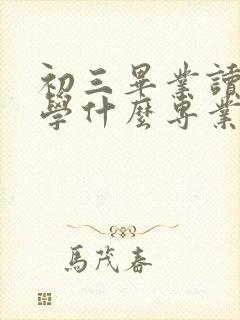 初三畢業讀
學什麼專業
馬茂春